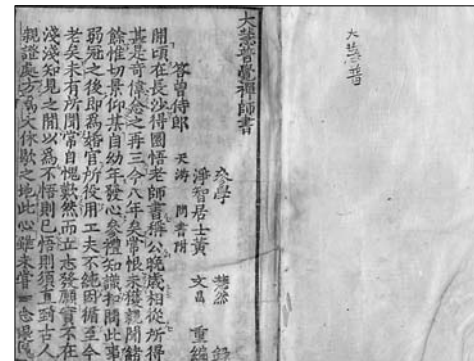 大慧普
大慧普覺禪師書
參學 慧然 錄
淨智居士黃 文昌 重編
答曾侍郎 天游 問書附
開頃在長沙得圜悟老師書稱公晚歲相從所得
甚是奇偉念之再三今八年矣常恨未獲親聞緒
餘惟切景仰某自幼年發心參禮知識扣問此事
弱冠之後即為婚宦所役用工夫不純因循至今
老矣未有所聞常自愧歎然而立志發願實不在
淺淺知見之間以為不悟則已悟則須直到古人
親證處方為大休歇之地此心雖未嘗一念退